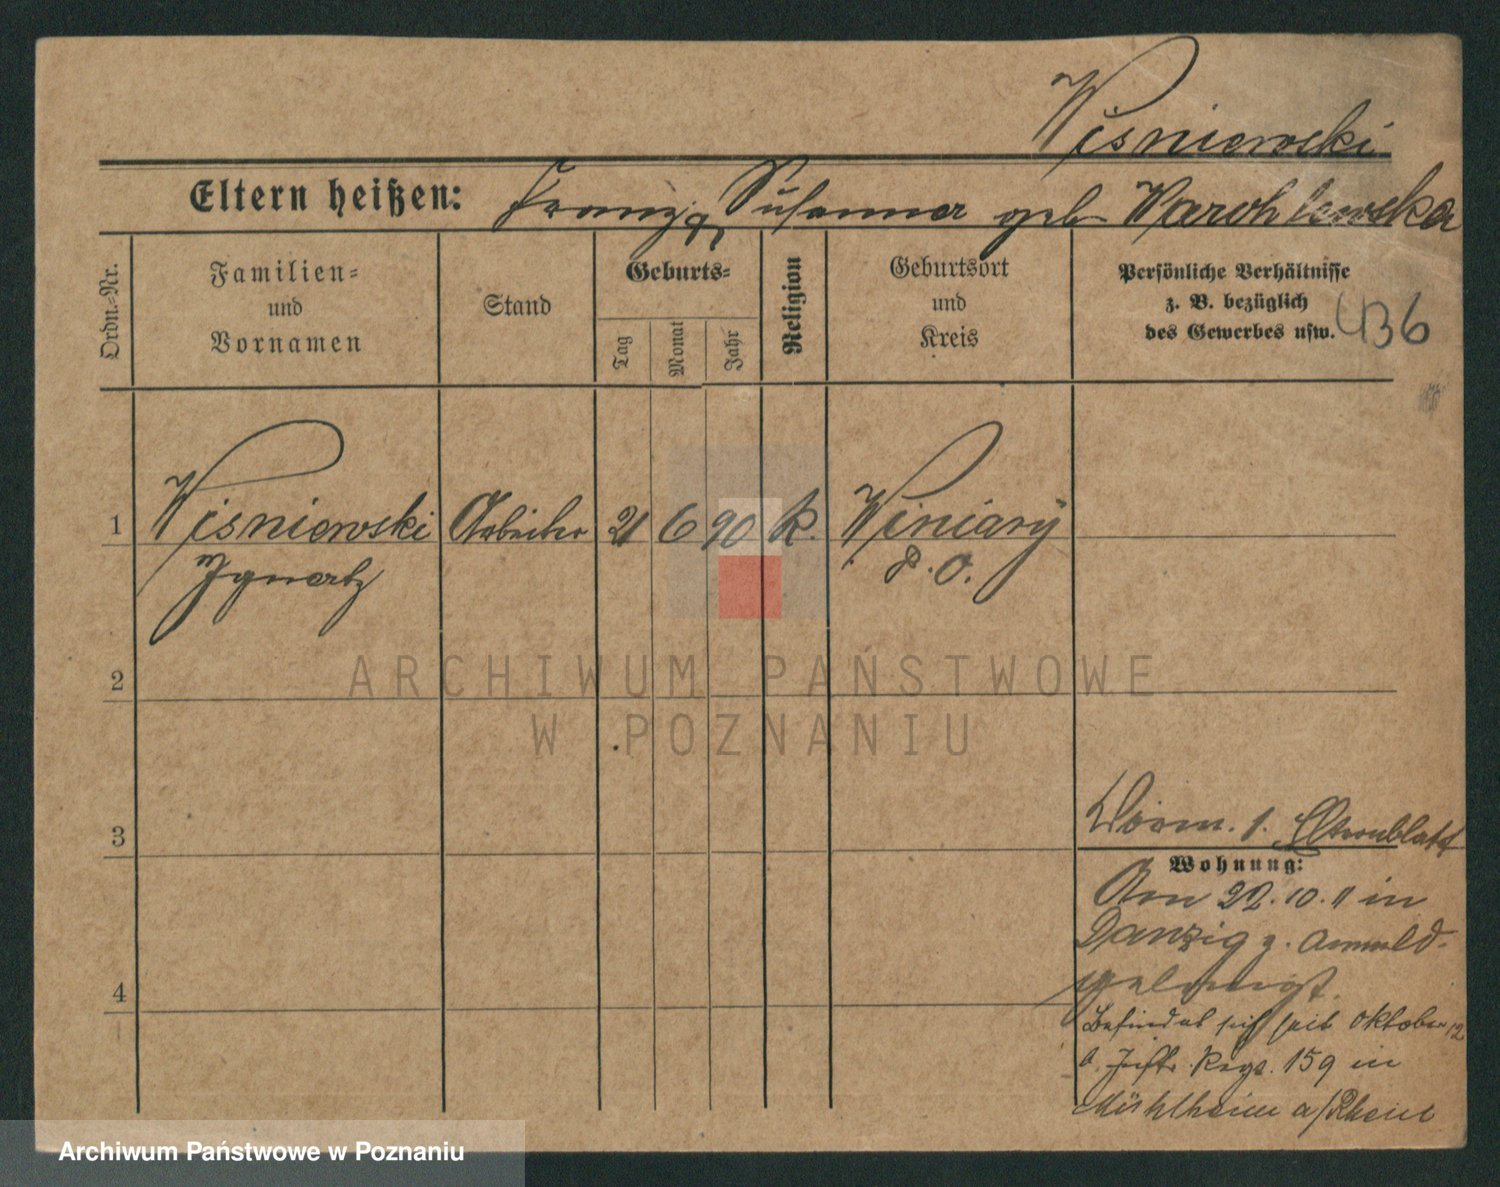 Wisniewski
Eltern heißen: Franz, Susanna geb Warchlewska
Ordn.-Nr.
Familien-
und
Vornamen
Stand
Geburts-
Tag
Monat
Jahr
Religion
Geburtsort
und
Kreis
Persönliche Verhältnisse
z. B. bezüglich
des Gewerbes usw.
436
1 Wisniewski Arbeiter 21 6 90 k. Winiary
Ignatz P. O.
2
ARCHIWUM PAŃSTWOWE
W POZNANIU
3
1. Elternblatt
Wohnung:
Am 22. 10. 11 in
Danzig z. Anmeld-
gelangt.
4
Befindet sich seit Oktober 12
b. Inftr. Regt. 159 in
Mühlheim a/Rhein
Archiwum Państwowe w Poznaniu